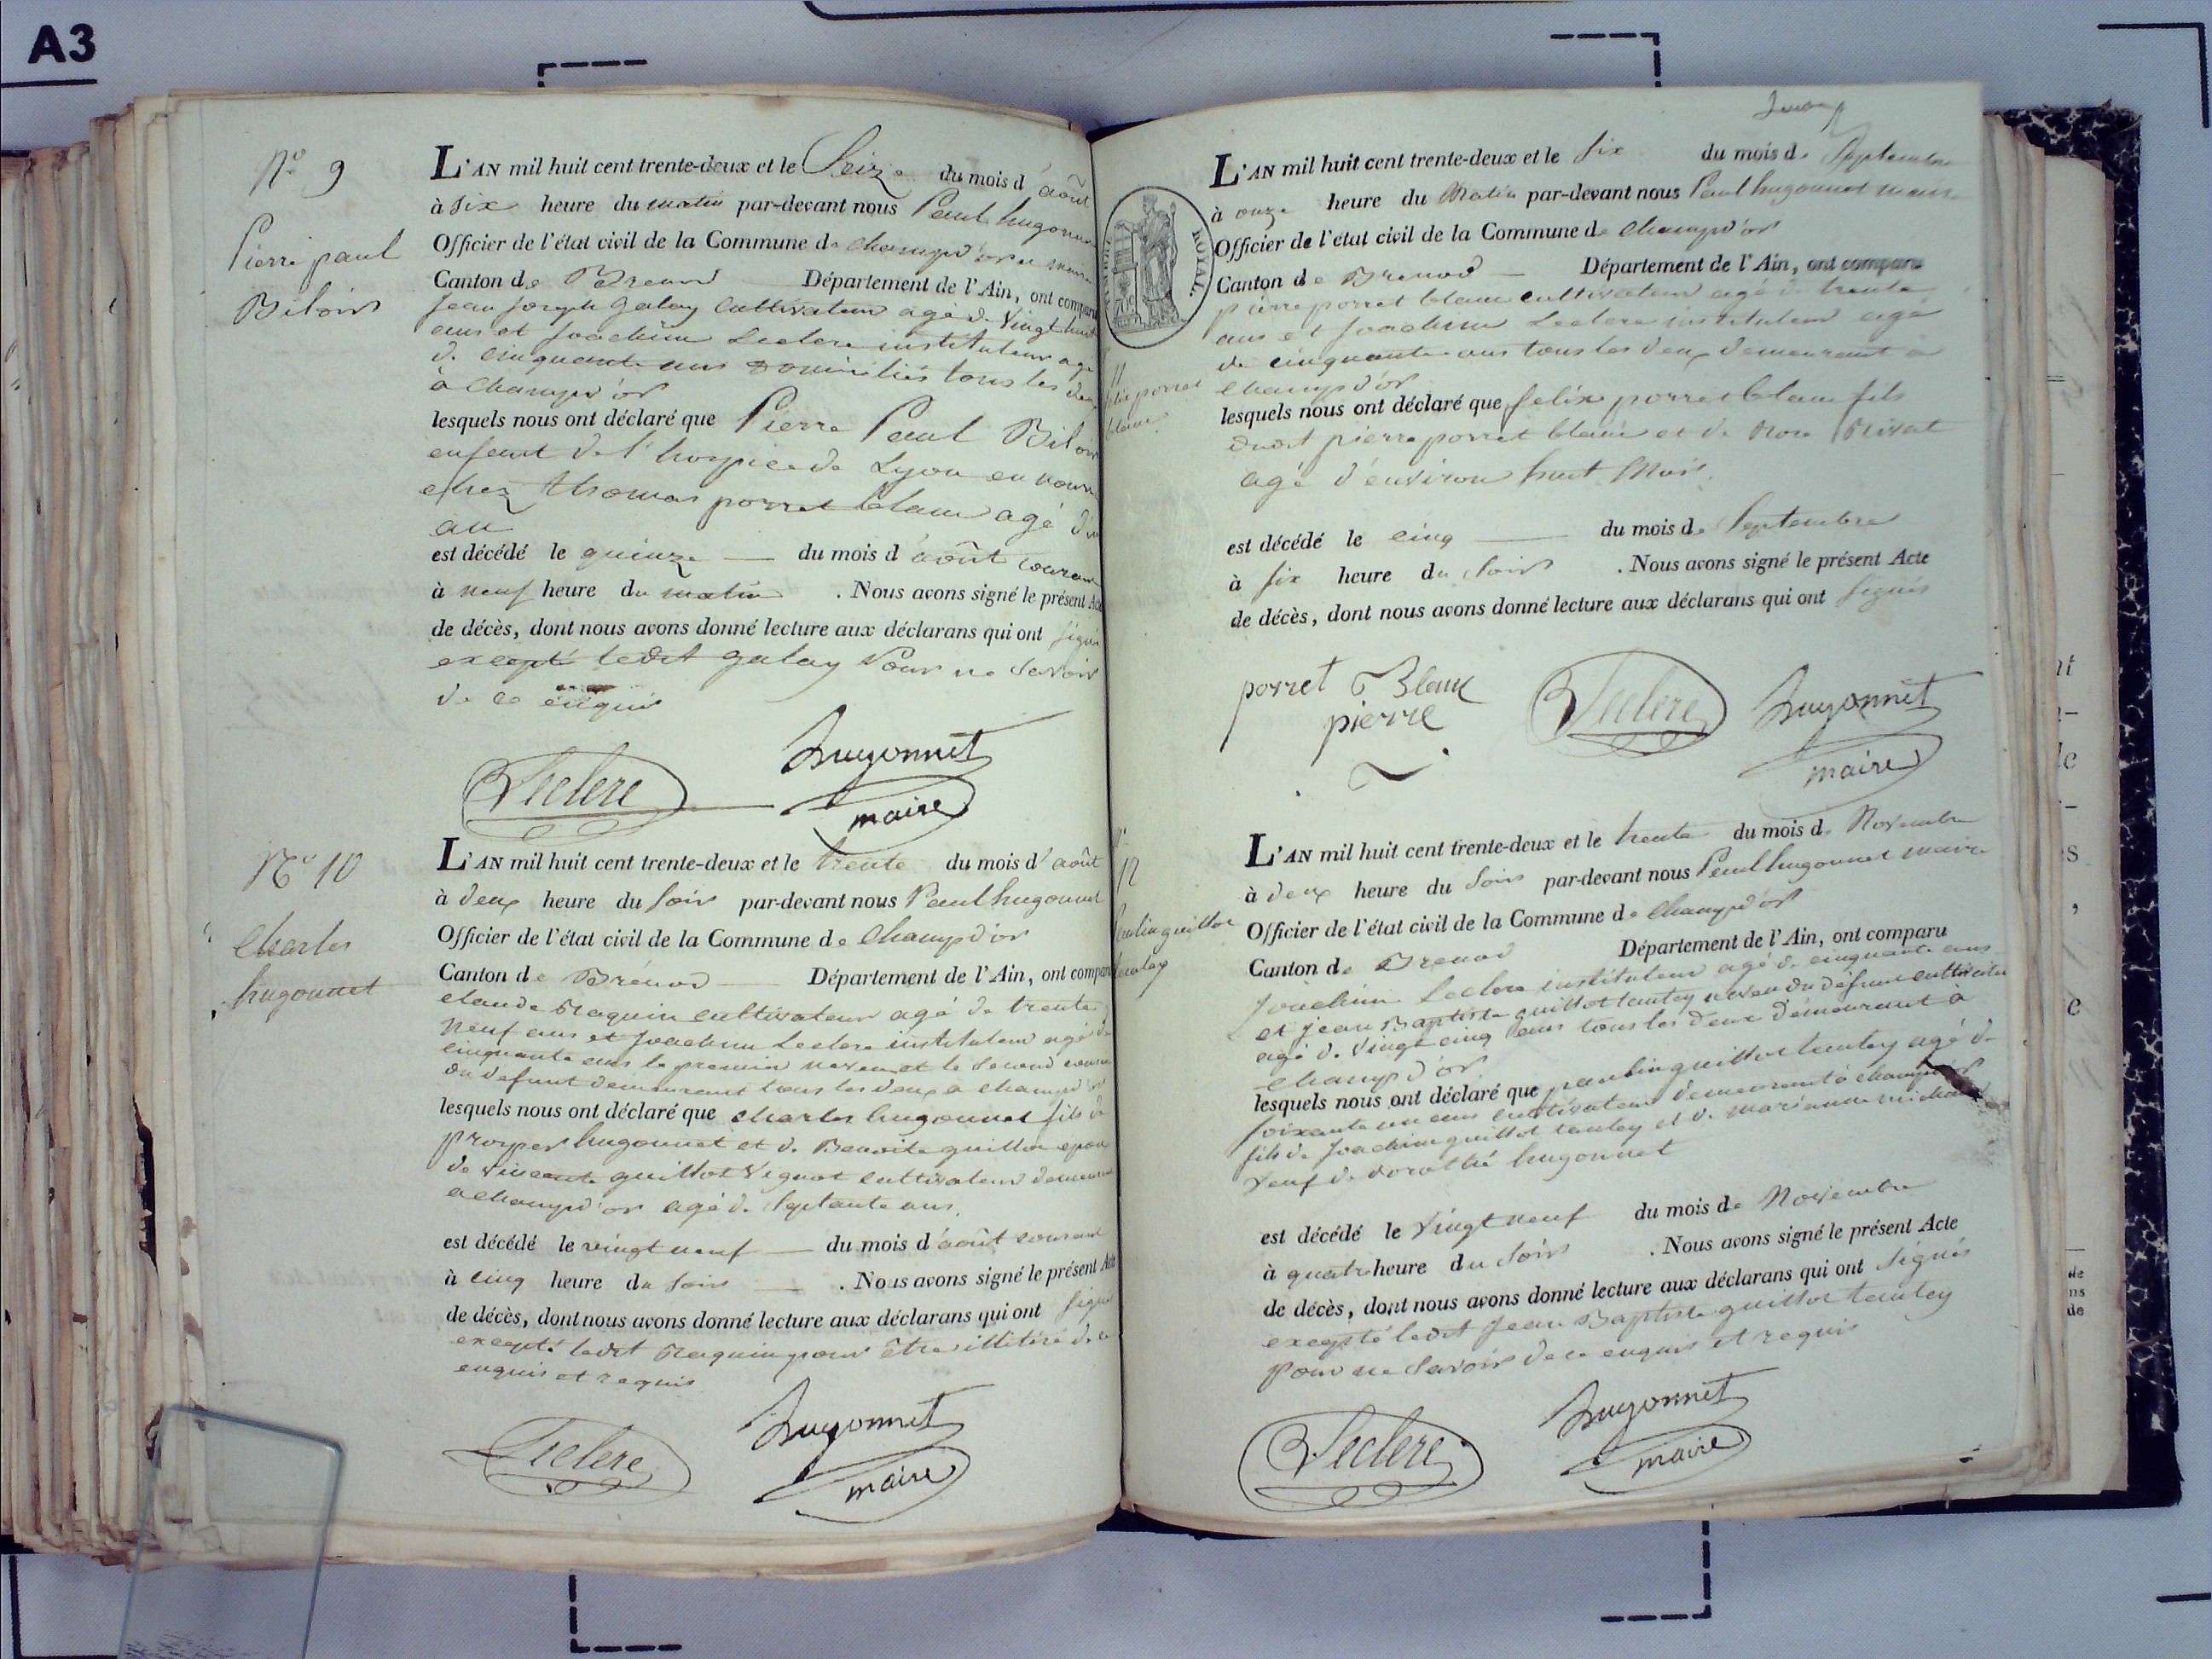 A3
N° 9
Pierre paul
Biloir
L'AN mil huit cent trente-deux et le Seize du mois d'août
à six heure du matin par-devant nous Paul hugonnet
Officier de l'état civil de la Commune de Champd'or
Canton de Brenod Département de l'Ain, ont comparu
Jean Joseph galay cultivateur agé de vingt huit
ans et Joachim Leclere instituteur agé
de cinquante ans domiciliés tous les deux
à Champd'or
lesquels nous ont déclaré que Pierre Paul Biloir
enfant de l'hospice de Lyon en
chez thomas porret blanc agé d'un
an
est décédé le quinze du mois d'août courant
à neuf heure du matin . Nous avons signé le présent Acte
de décès, dont nous avons donné lecture aux déclarans qui ont signé
excepté ledit galay Pour ne Savoir
de ce enquis
Leclere
hugonnet
maire
N° 10
Charles
hugonnet
L'AN mil huit cent trente-deux et le trente du mois d'août
à deux heure du soir par-devant nous Paul hugonnet
Officier de l'état civil de la Commune de Champd'or
Canton de Brénod Département de l'Ain, ont comparu
claude cultivateur agé de trente
neuf ans et Joachim Leclere instituteur agé de
cinquante ans le premier neveu et le second
du defunt demeurant tous les deux a champd'or
lesquels nous ont déclaré que charles hugonnet fils de
prosper hugonnet et de Benoite guillot
de vincente guillot vignat cultivateur demeurant
a champd'or agé de septante ans.
est décédé le vingt neuf du mois d'août courant
à cinq heure du soir . Nous avons signé le présent Acte
de décès, dont nous avons donné lecture aux déclarans qui ont signé
excepté ledit pour être illitéré de ce
enquis et requis
Leclere
hugonnet
maire
ROYAL
11
felix porret
blanc
L'AN mil huit cent trente-deux et le six du mois de Septembre
à onze heure du Matin par-devant nous Paul hugonnet maire
Officier de l'état civil de la Commune de Champd'or
Canton de Brenod Département de l'Ain, ont comparu
pierre porret blanc cultivateur agé de trente
ans et Joachim Leclere instituteur agé
de cinquante ans tous les deux demeurant à
Champd'or
lesquels nous ont déclaré que felix porret blanc fils
dudit pierre porret blanc et de Rose
agé d'environ huit Mois.
est décédé le cinq du mois de Septembre
à six heure du soir . Nous avons signé le présent Acte
de décès, dont nous avons donné lecture aux déclarans qui ont signés
porret Blanc
pierre
Leclere
hugonnet
maire
N°
12
Paulin guillot
tantey
L'AN mil huit cent trente-deux et le trente du mois de Novembre
à deux heure du soir par-devant nous Paul hugonnet maire
Officier de l'état civil de la Commune de Champd'or
Canton de Brenod Département de l'Ain, ont comparu
Joachim Leclere instituteur agé de cinquante ans
et Jean Baptiste guillot tantey neveu du défunt cultivateur
agé de vingt cinq ans tous les deux demeurant à
Champd'or
lesquels nous ont déclaré que paulin guillot tantey agé de
soixante un ans cultivateur demeurant à champd'or
fils de Joachim guillot tantey et de marianne
veuf de dorothé hugonnet
est décédé le vingt neuf du mois de Novembre
à quatre heure du soir . Nous avons signé le présent Acte
de décès, dont nous avons donné lecture aux déclarans qui ont signés
excepté ledit Jean Baptiste guillot tantey
pour ne savoir de ce enquis et requis
Leclere
hugonnet
maire